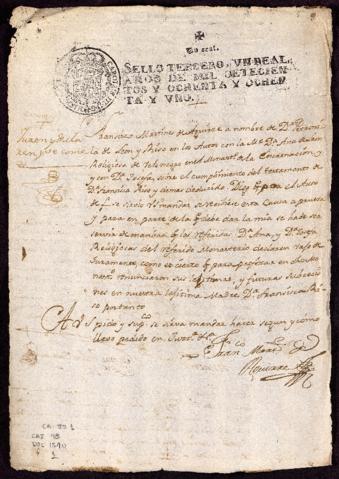 Un real.
SELLO TERCERO, VN REAL,
AÑOS DE MIL SETECIEN
TOS Y OCHENTA Y OCHEN
TA Y VNO.
Francisco Martin de Aguirre a nombre de Dn
de Leon y Riso en los Autos con la Me Da Ana
Religiosa de Velo negro en el Monasto de la Encarnacion, y
con Da Josefa, sobre el cumplimiento del testamento de
Da Francisca Riso y demas deducido Digo q. el Auto
de se sirvio VS mandar a recivir esta Causa a prueba
y para en parte de la q. debe dar la mia se ha de
servir de mandar q. las referidas Da Ana, y Da Josefa
Religiosas del referido Monasterio declaren vajo de
Juramento, como es cierto q. para profesar en dho
renunciaron sus legitimas, y futuras
nes en nuestra legitima Madre Da Francisca Ri
so por tanto
A VS pido y supco se sirva mandar hacer segun y como
llevo pedido en Just.
Fran co Martn
Aguirre
CA-JO 1
CAJ 98
DOC 1590
f 1